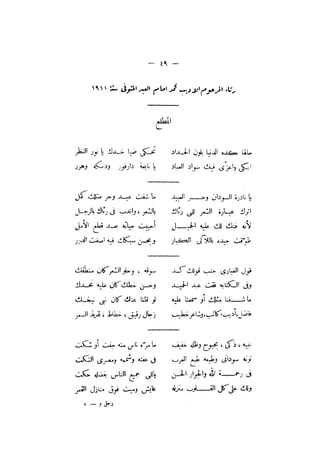 — ٤٩ —
رثاء المرحوم الأديب محمد امام العبد المتوفى سنة ١٩١١
المطلع
مالها كده الدنيا بلون الحداد
تحكى ضيا خدك يا نور النظر
ابكى واعزى فيك سواد العباد
يا نابغة دارفور ودنكه وهرر
يا نادرة السودان وحر العبيد
ما شفت عبد وحر مثلك كمل
اترك عبارة الشعر للى رثاك
بالشعر، واندب فى رثاك بالزجل
لأنه فنك لك عليه الجميل
أحييت حياته بعد قطع الأمل
طوقت جيده باللآلى الكبار
وبحسن سبكك فيه اصغت الدرر
قول الغبارى جنب قولك كده
سوقه، وحلو الشعر كان منطقك
وفى الكتابه فقت عبد الحميد
وحسن خطك كان عليه نحمدك
ما شفنا مثلك أو سمعنا عليه
لو قلنا عندك كان نبى نبخدك
فاضل، أديب، كاتب، وشاعر خطيب
زجال رقيق، خطاط، لطيف السمر
نبيه، ذكى، بحبوح وظله خفيف
ما مره ناس منه جفت أو شكت
لونه سودانى وطبعه طبع العرب
فى عفته وشممه ومصرى النكت
فى رحمة الله والجوار الحسن
ياللى جميع الناس بفضله حكت
ولك على كل القلوب منزله
عايش وميت فوق منازل القمر
زجل م — ٤